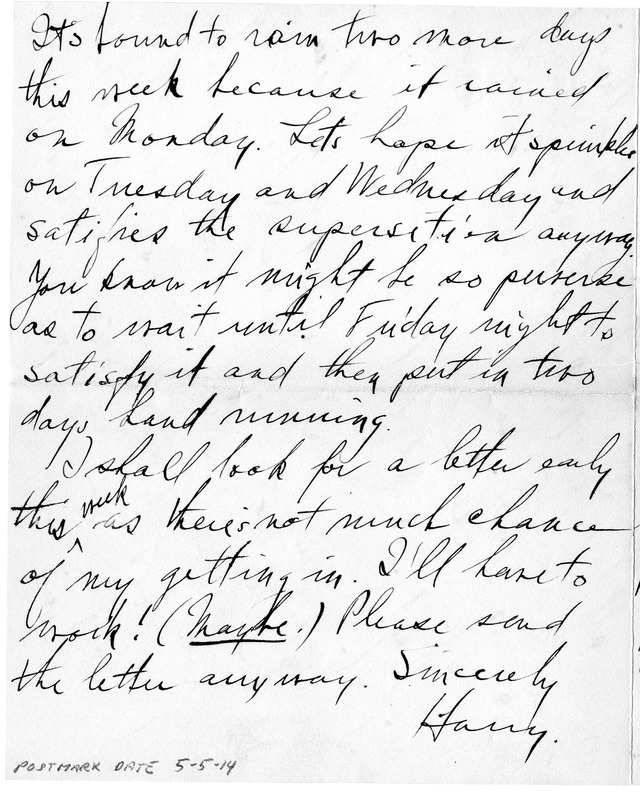 Its bound to rain two more days
this week because it rained
on Monday. Lets hope it sprinkles
on Tuesday and Wednesday and
satisfies the superstition anyway.
You know it might be so perverse
as to wait until Friday night to
satisfy it and then put in two
days hand running.
I shall look for a letter early
this week as there's not much chance
of my getting in. I'll have to
work! (Maybe.) Please send
the letter anyway. Sincerely
Harry.
POSTMARK DATE 5-5-14